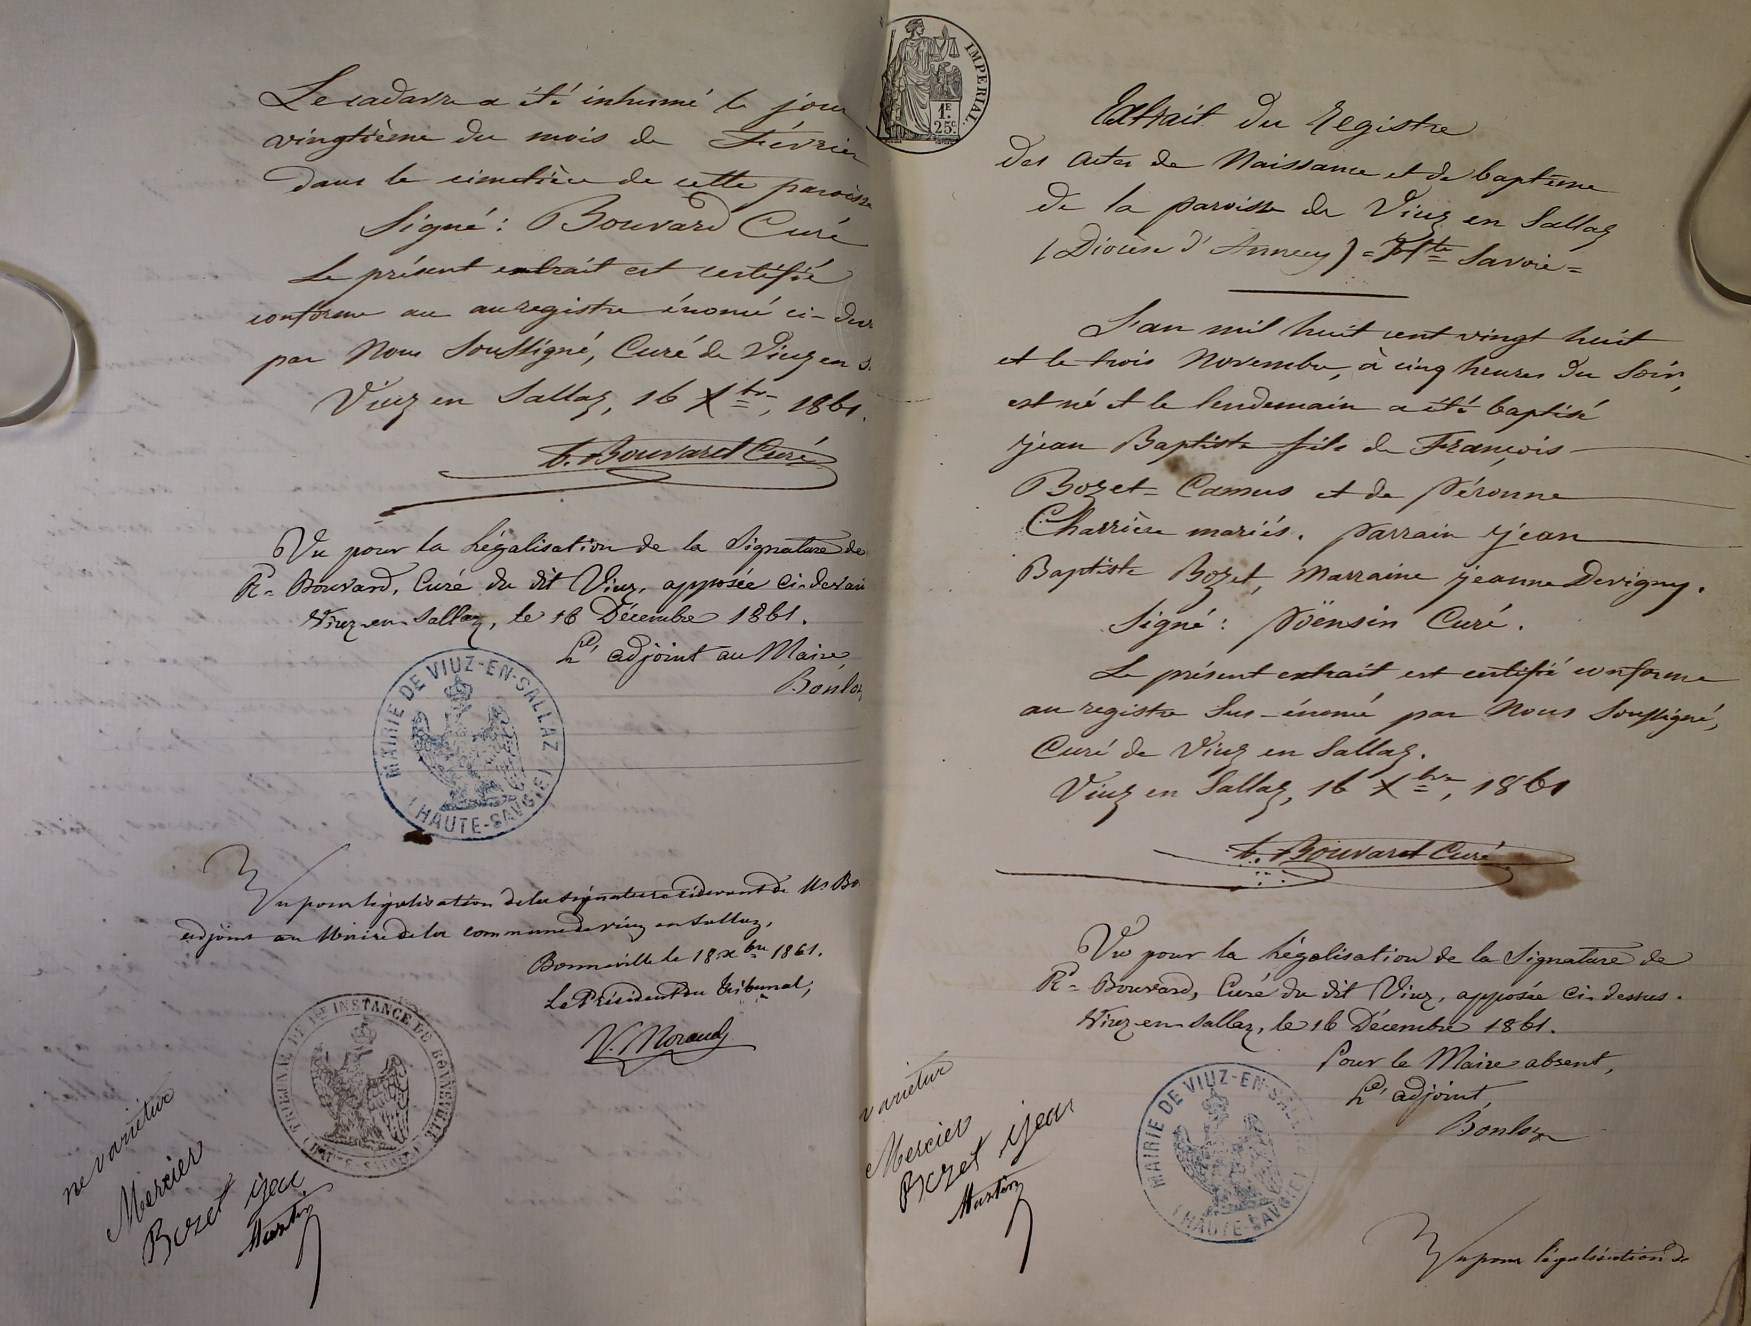 Le cadavre a été inhumé le jour
vingtième du mois de Février
dans le cimetière de cette paroisse
Signé: Bouvard Curé
Le présent extrait est certifié
conforme au au registre énomé ci-des
par Nous Soussigné, Curé de Viuz en S.
Viuz en Sallaz, 16 Xbre, 1861.
Bouvard Curé
Vu pour la légalisation de la Signature de
Rd Bouvard, Curé du dit Viuz, apposée ci-devan
Viuz-en-Sallaz, le 16 Décembre 1861.
Le adjoint au Maire
MAIRIE DE VIUZ-EN-SALLAZ
(HAUTE-SAVOIE)
Vu pour légalisation de la signature ci devant de Mr Bo
adjoint au Maire de la commune de viuz en Sallaz,
Bonneville le 18 Xbre 1861.
Le Président du tribunal,
TRIBUNAL DE 1re INSTANCE DE BONNEVILLE
(HAUTE-SAVOIE)
ne varietur
Mercier
Bozet jean
Martin
IMPERIAL.
1F
25c
Extrait du Registre
des actes de Naissance et de baptême
de la paroisse de Viuz en Sallaz
(Diocèse d'Annecy) = Hte Savoie =
L'an mil huit cent vingt huit
et le trois Novembre, à cinq heures du Soir,
est né et le lendemain a été baptisé
jean Baptiste fils de François
Bozet-Camus et de Péronne
Charrière mariés. Parrain jean
Baptiste Bozet, Marraine jeanne Devigny.
Signé: Poënsin Curé.
Le présent extrait est certifié conforme
au registre Sus-énomé par Nous Soussigné,
Curé de Viuz en Sallaz.
Viuz en Sallaz, 16 Xbre, 1861
Bouvard Curé
Vu pour la légalisation de la Signature de
Rd Bouvard, Curé du dit Viuz, apposée ci-dessus.
Viuz-en-Sallaz, le 16 Décembre 1861.
Pour le Maire absent,
Le adjoint,
MAIRIE DE VIUZ-EN-SALLAZ
(HAUTE-SAVOIE)
varietur
Mercier
Bozet jean
Martin
Vu pour légalisation de